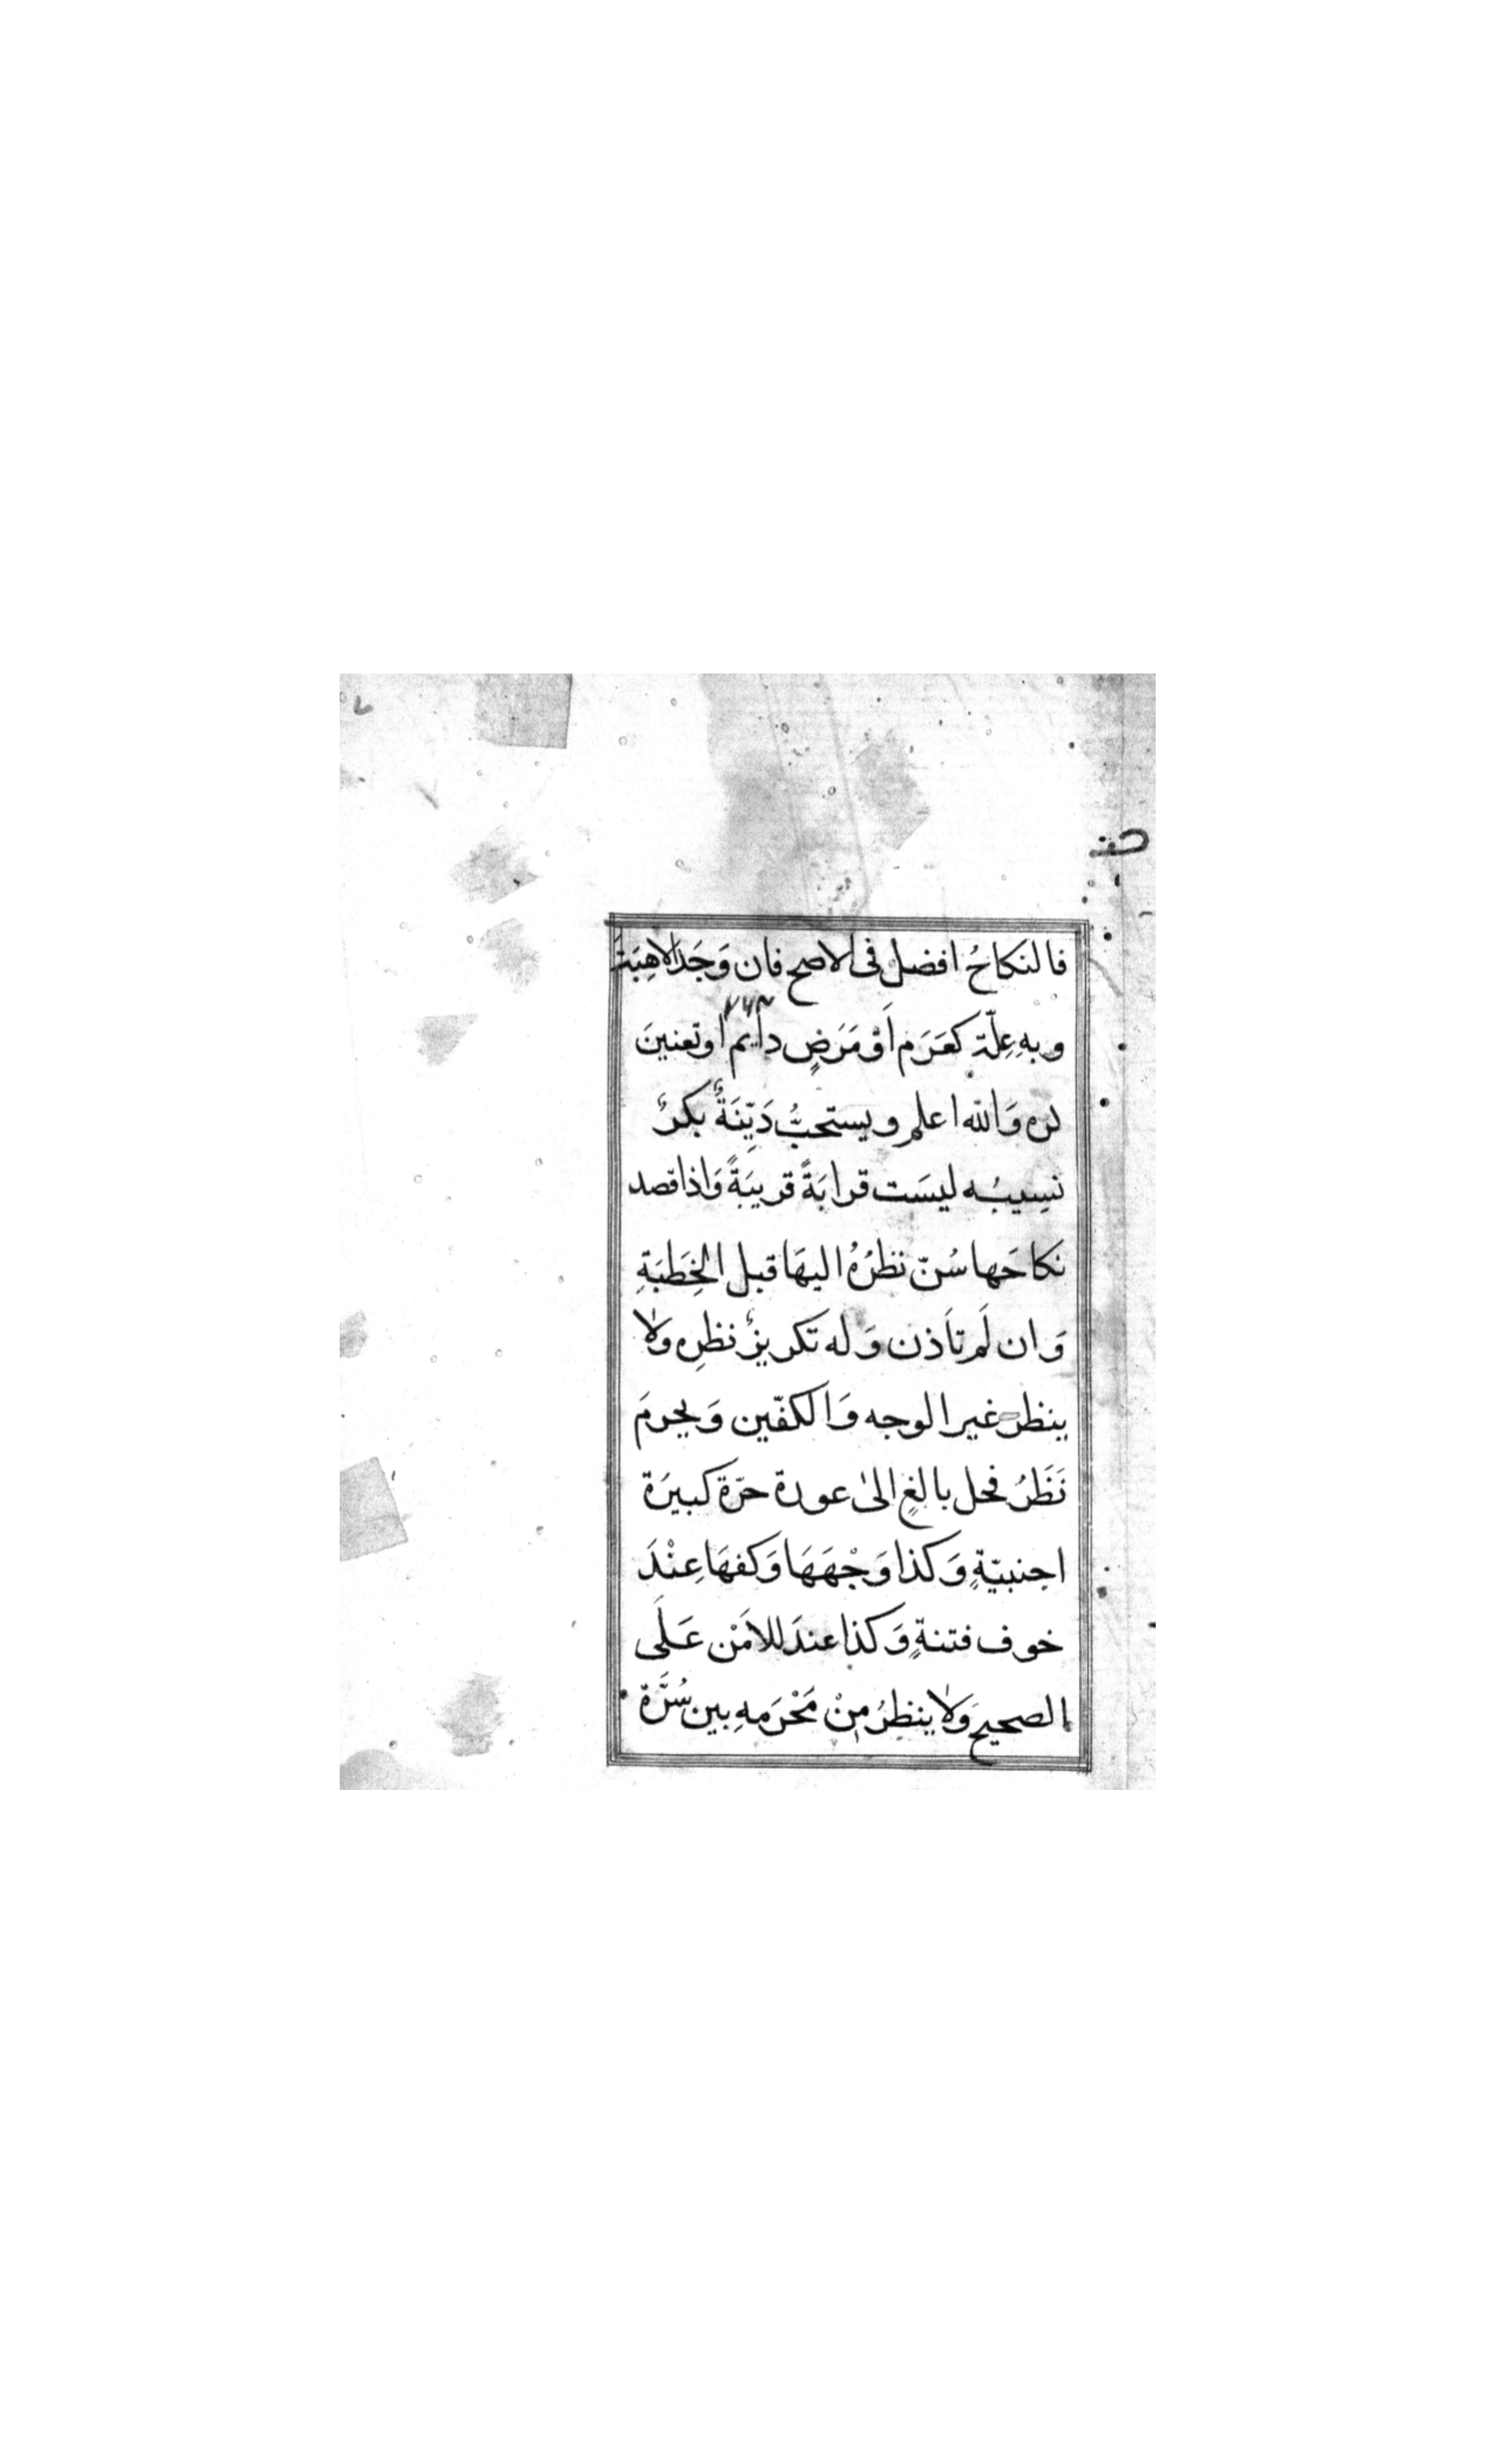 فالنكاحُ افضل فى الاصح فان وَجَد الاهبَة
وبهِ عِلّة كعَرَم اَوْ مَرَضٍ دايم اوتعنينَ
كره وَالله اعلم ويستحبُّ دَيِّنَةٌ بكرٌ
نسِيبُه ليسَت قرابَةً قريبَةً وَاذا قصد
نكاحَها سُنّ نظرُهُ اليهَا قبل الخِطَبَةِ
وَان لَم تأذن وَله تكريرٌ نظرِه ولا
ينظر غير الوجه وَالكفّين وَيحرمَ
نَظَرُ فحل بالغٍ الىٰ عورة حرّة كبيرَة
اجنبيّةٍ وَكذا وَجْهَهَا وَكفهَا عِنْدَ
خوف فتنةٍ وَكذا عندَ للامَنْ عَلَى
الصحيحَ وَلا ينظرُ مِنْ مَحْرَمهِ بين سُرَّة